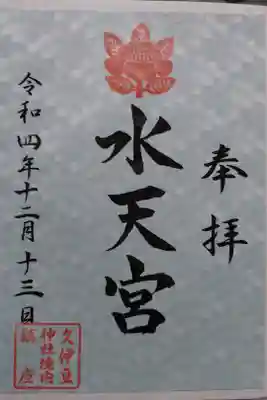 奉拝
水天宮
令和四年十二月十三日
久伊豆
神社境内
鎮座